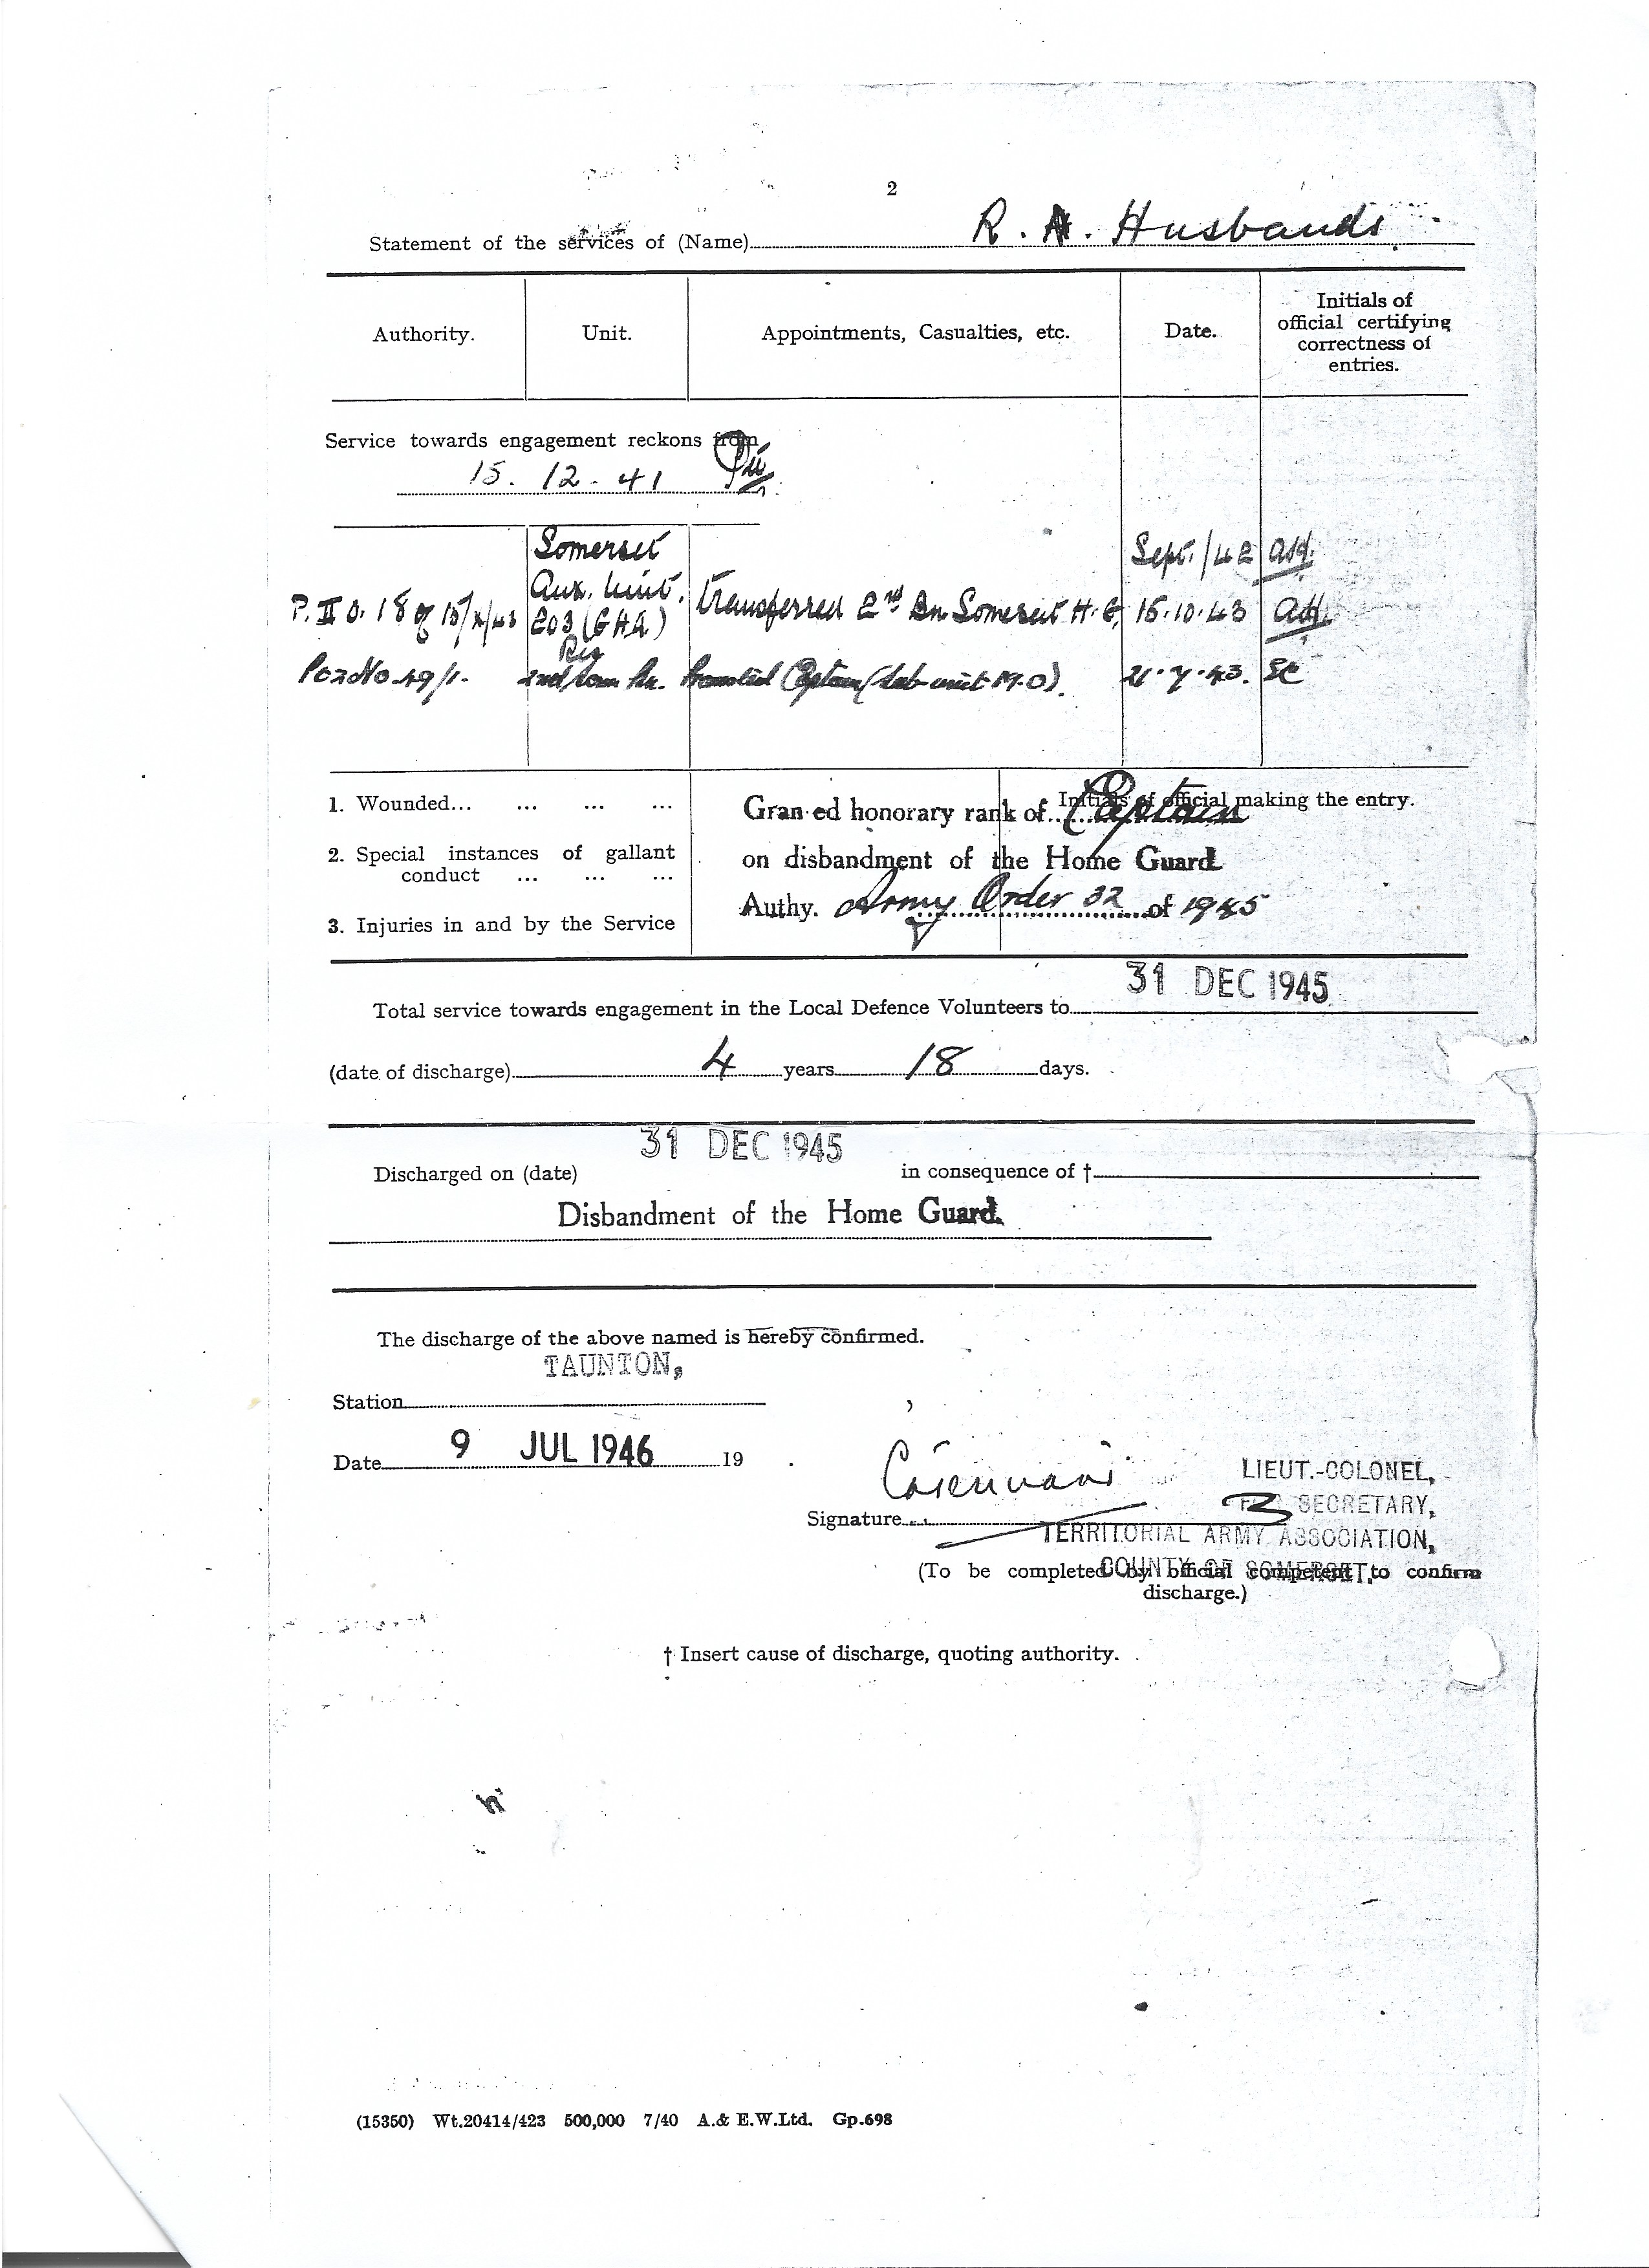 2
Statement of the services of (Name) R. A. Husbands
Authority. Unit. Appointments, Casualties, etc. Date. Initials of official certifying correctness of entries.
Service towards engagement reckons from
15. 12. 41
Somerset Sept./42
Aux. Unit.
P. II O. 18 of 15/X/43 203 (GHQ) Res transferred 2nd Bn Somerset H.G. 15.10.43
2nd Som Bn. Promoted Captain (Sub-unit M.O).
1. Wounded... ... ... ...
Initials of official making the entry.
Granted honorary rank of Captain
2. Special instances of gallant
conduct ... ... ...
on disbandment of the Home Guard
Authy. Army Order 32 of 1945
3. Injuries in and by the Service
Total service towards engagement in the Local Defence Volunteers to 31 DEC 1945
(date of discharge) 4 years 18 days.
Discharged on (date) 31 DEC 1945 in consequence of †
Disbandment of the Home Guard.
The discharge of the above named is hereby confirmed.
TAUNTON,
Station
Date 9 JUL 1946 19
LIEUT.-COLONEL,
Signature SECRETARY,
TERRITORIAL ARMY ASSOCIATION,
COUNTY OF SOMERSET.
(To be completed by official competent to confirm
discharge.)
† Insert cause of discharge, quoting authority.
(15350) Wt.20414/423 500,000 7/40 A.& E.W.Ltd. Gp.698